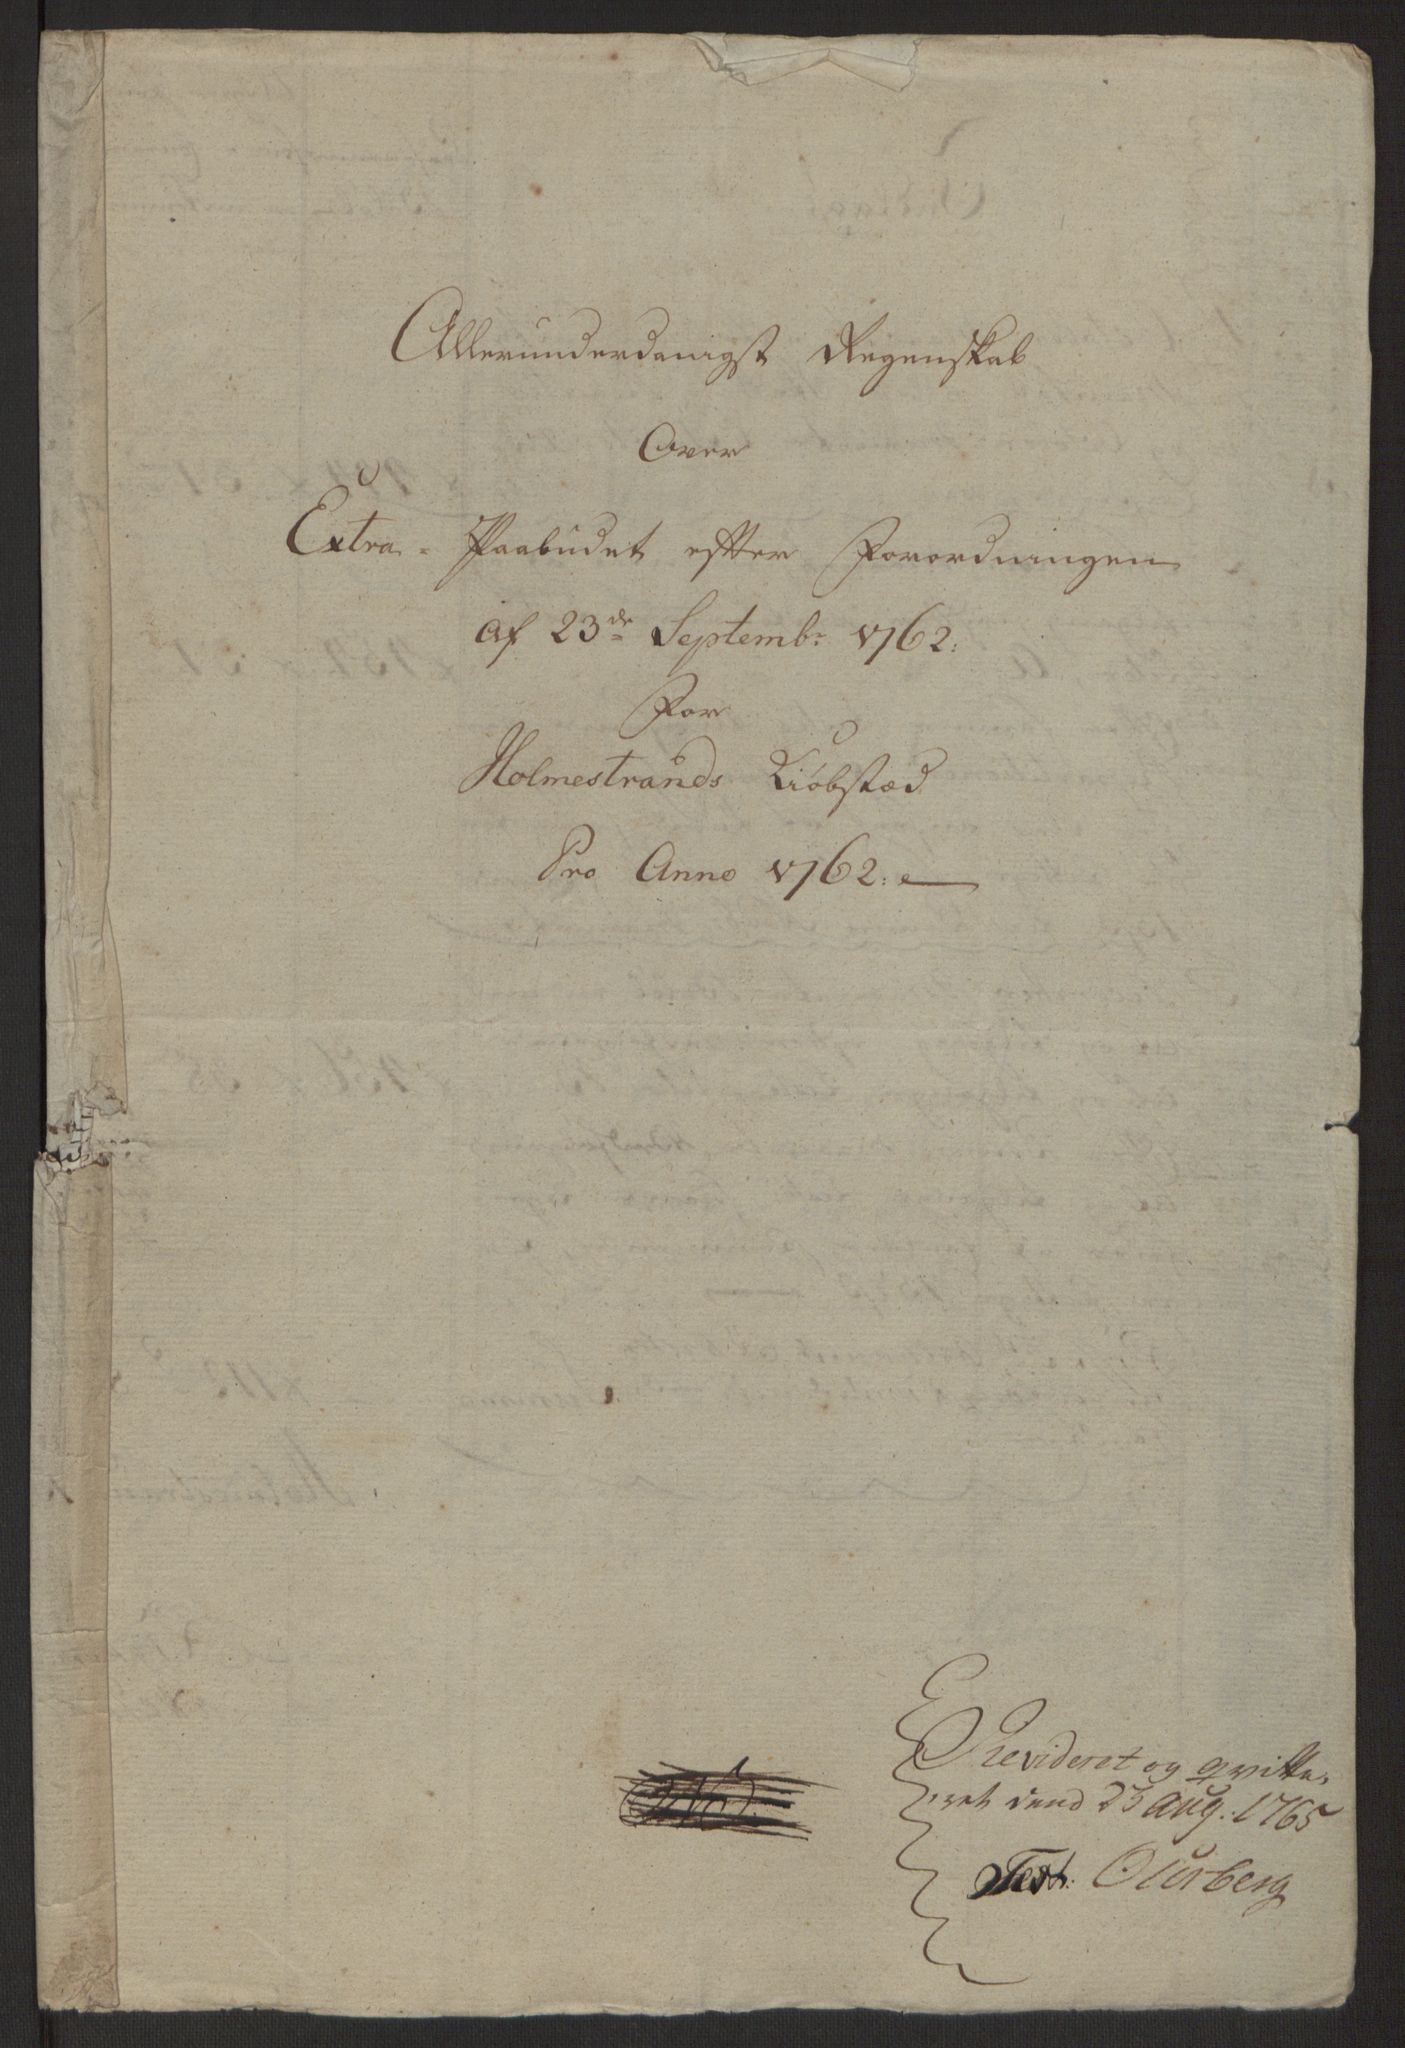 Allerunderdanigst Regenskab
Over
Extra- Paabudet efter Forordningen
af 23de Septembr 1762:
For
Holmestrands Kiöbstæd
Pro Anno 1762:
Revideret og qvitte-
ret dend 23 Aug: 1765
Test: